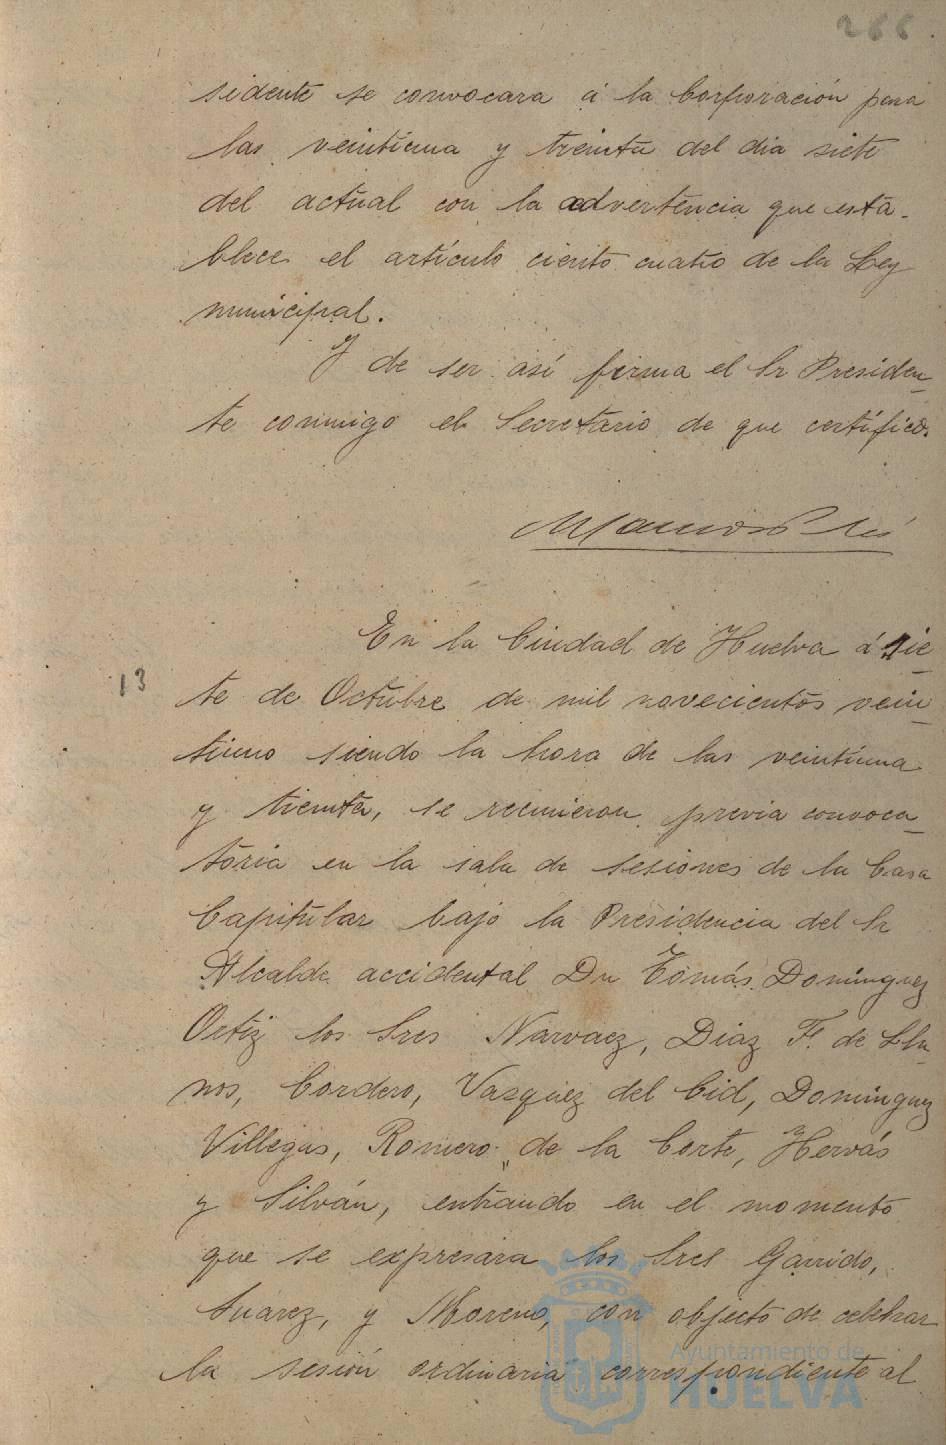 266
sidente se convocara á la Corporación para
las veintiuna y treinta del dia siete
del actual con la advertencia que esta-
blece el artículo ciento cuatro de la Ley
municipal.
Y de ser así firma el Sr Presiden-
te conmigo el Secretario de que certifico.
En la Ciudad de Huelva á sie-
13
te de Octubre de mil novecientos vein-
tiuno siendo la hora de las veintiuna
y treinta, se reunieron previa convoca-
toria en la sala de sesiones de la Casa
Capitular bajo la Presidencia del Sr
Alcalde accidental Dn Tomás Dominguez
Ortiz los Sres Narvaez, Diaz F. de Lla-
nos, Cordero, Vazquez del Cid, Dominguez
Villegas, Romero de la Corte, Hervás
y Silván, entrando en el momento
que se expresara los Sres Garrido,
Suarez, y Moreno, con objecto de celebrar
la sesión ordinaria correspondiente al
Ayuntamiento de
HUELVA